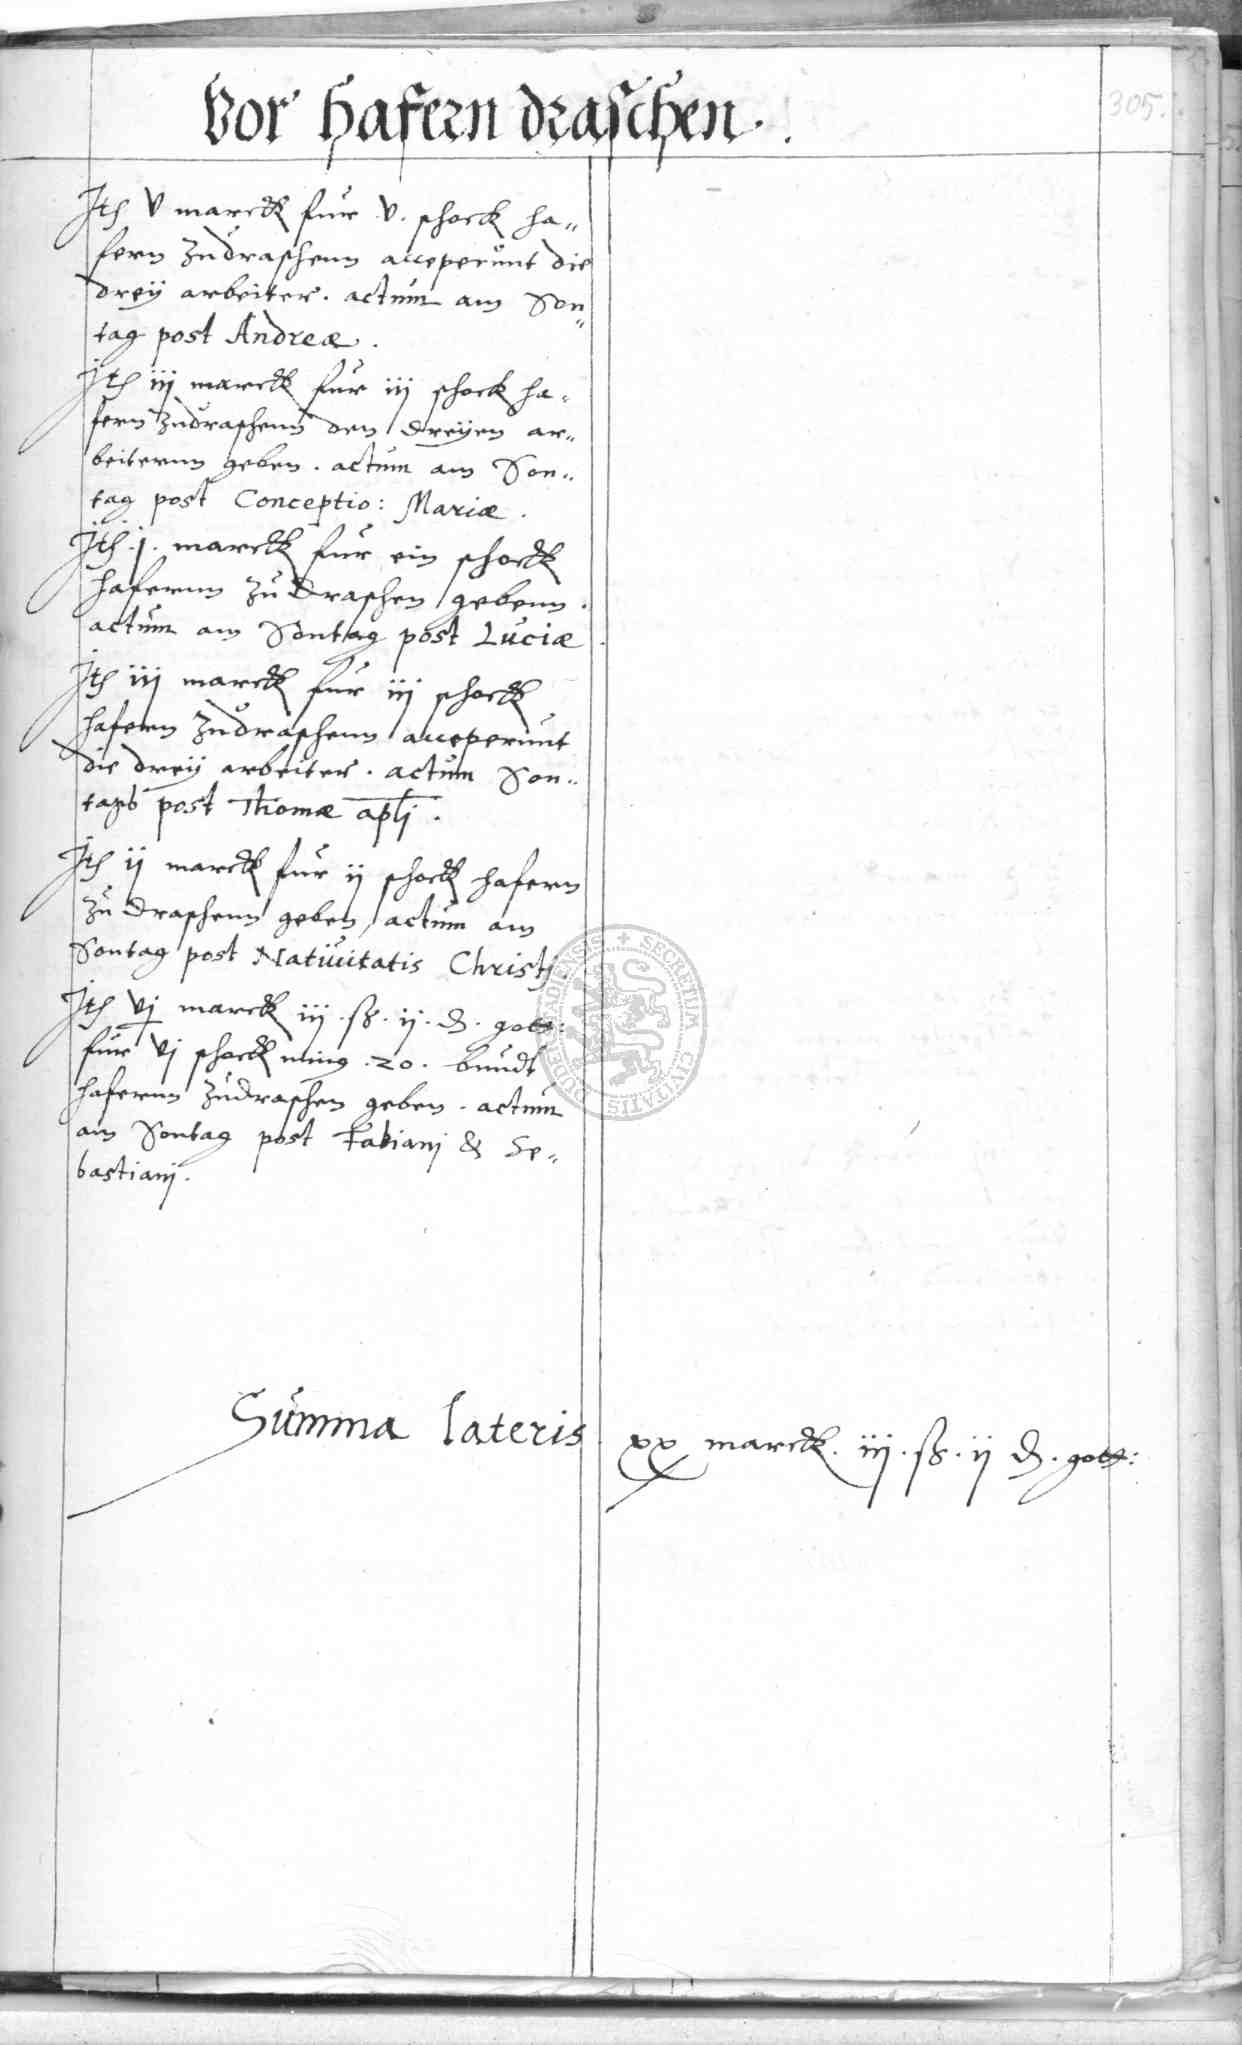 Vor hafern draschen.
305.
Itē v marck fur .v. schock ha„
fern zudraschenn acceperunt die
drey arbeiter. actum am Son„
tag post Andreæ.
Itē iij marck fur iij schock ha„
fern zudraschenn den dreyen ar„
beiternn geben. actum am Son„
tag post Conceptio: Mariæ.
Itē .j. marck fur ein schock
hafernn zu draschen gebenn.
actum am Sontag post Luciæ.
Itē iij marck fur iij schock
hafern zudraschenn acceperunt
die drey arbeiter. actum Son„
tags post Thomæ apli.
Itē ij marck fur ij schock hafern
zu draschenn geben, actum am
Sontag post Natiuitatis Christj.
Itē vj marck iij .ß. ij. ₰. gott:
fur vj schock ming .20. bundt
hafernn zudraschen geben. actum
am Sontag post Fabianj & Se„
bastianj.
Summa lateris xx marck. iij .ß. ij ₰. gott:
SECRETUM CIVITATIS BUDENSSADIENSIS